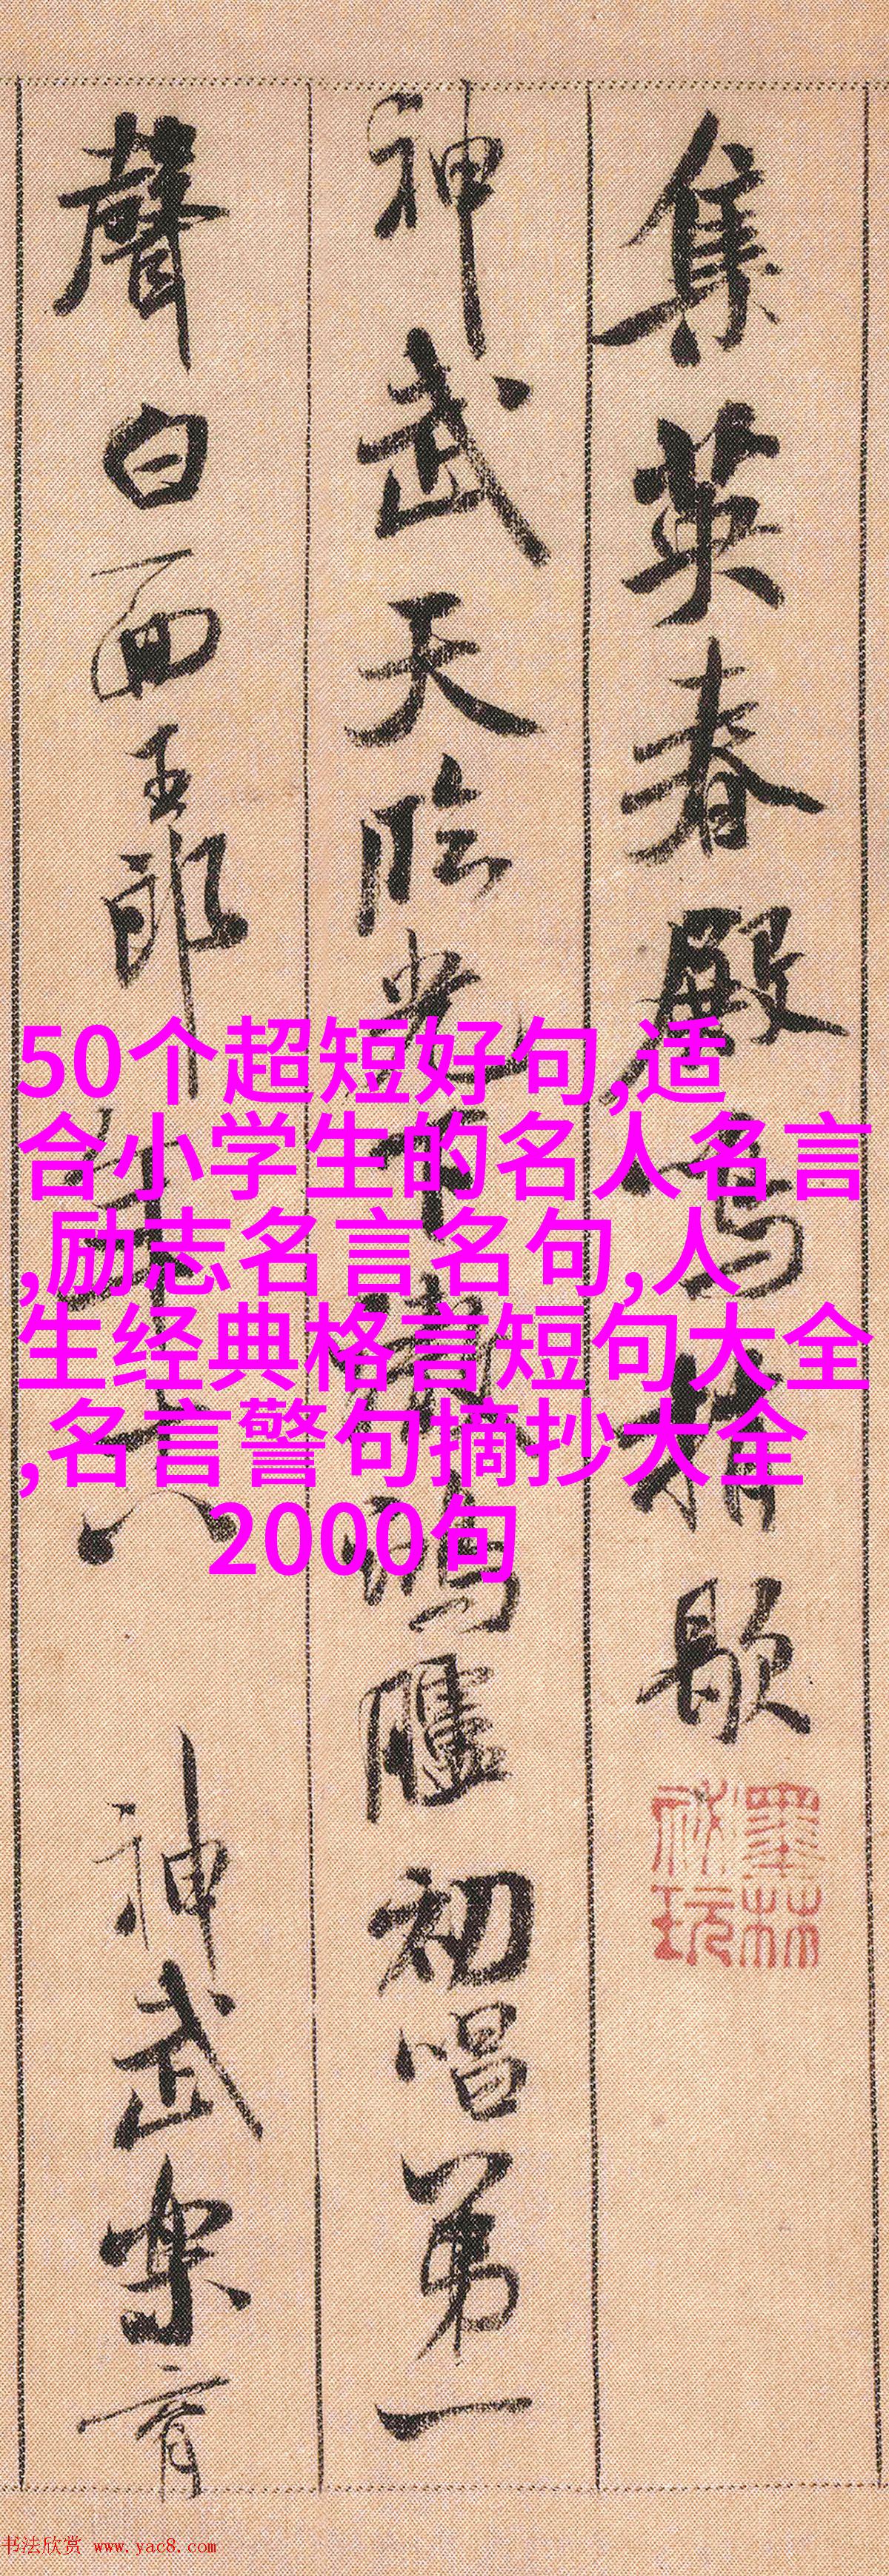 集英春殿鳴捎歇
神武天臨光下澈鴻臚初唱第一
聲白面王郎年十八 神武樂育
墨林秘玩
50个超短好句,适
合小学生的名人名言
,励志名言名句,人
生经典格言短句大全
,名言警句摘抄大全
2000句
书法欣赏 www.yac8.com